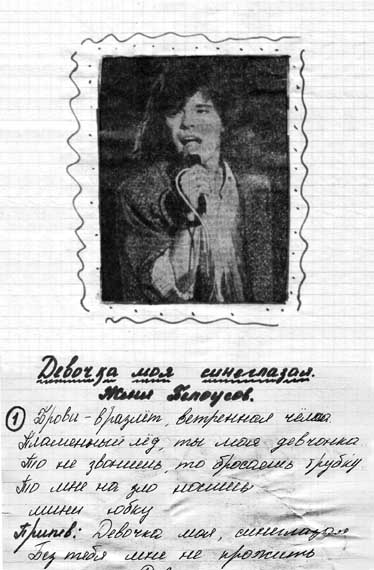 Девочка моя синеглазая.
Женя Белоусов.
① Брови-вразлёт, ветренная чёлка
Пламенный лёд, ты моя девчонка
То не звонишь, то бросаешь трубку
То мне на зло носишь
мини юбку
Припев: Девочка моя, синеглазая
Без тебя мне не прожить